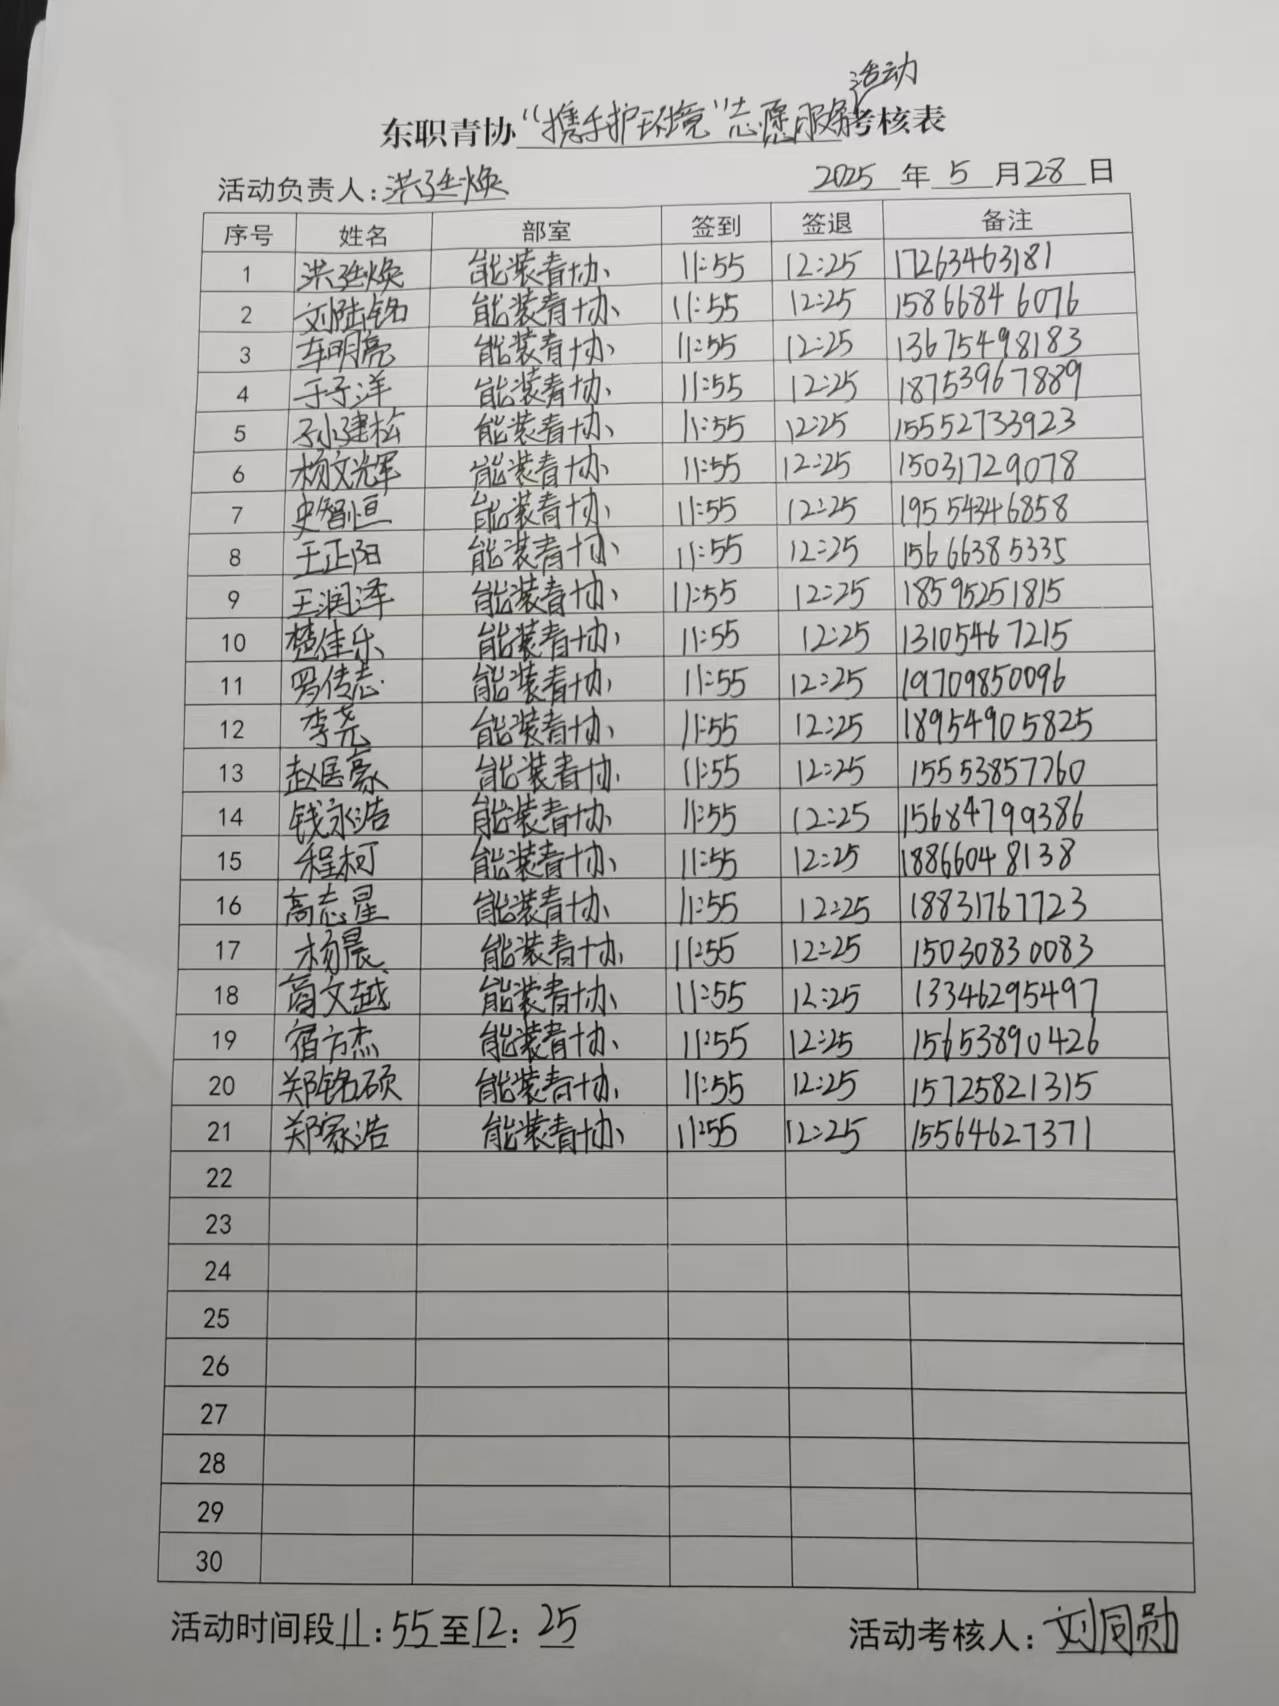 东职青协“携手护环境”志愿服务活动考核表
活动负责人:洪廷焕 2025年5月28日
序号 姓名 部室 签到 签退 备注
1 洪廷焕 能装青协 11:55 12:25 17263463181
2 刘陆铭 能装青协 11:55 12:25 15866846076
3 车明亮 能装青协 11:55 12:25 13675498183
4 于子洋 能装青协 11:55 12:25 18753967889
5 孙建松 能装青协 11:55 12:25 15552733923
6 杨文光军 能装青协 11:55 12:25 15031729078
7 史智恒 能装青协 11:55 12:25 19554346858
8 王正阳 能装青协 11:55 12:25 15666385335
9 王润泽 能装青协 11:55 12:25 18595251815
10 楚佳乐 能装青协 11:55 12:25 13105467215
11 罗传志 能装青协 11:55 12:25 19709850096
12 李尧 能装青协 11:55 12:25 18954905825
13 赵居豪 能装青协 11:55 12:25 15553857760
14 钱永浩 能装青协 11:55 12:25 15684799386
15 程柯 能装青协 11:55 12:25 18866048138
16 高志星 能装青协 11:55 12:25 18831767723
17 杨晨 能装青协 11:55 12:25 15030830083
18 高文越 能装青协 11:55 12:25 13346295497
19 宿方杰 能装青协 11:55 12:25 15653890426
20 郑铭硕 能装青协 11:55 12:25 15725821315
21 郑家浩 能装青协 11:55 12:25 15564627371
22
23
24
25
26
27
28
29
30
活动时间段11:55至12:25 活动考核人:刘同勋